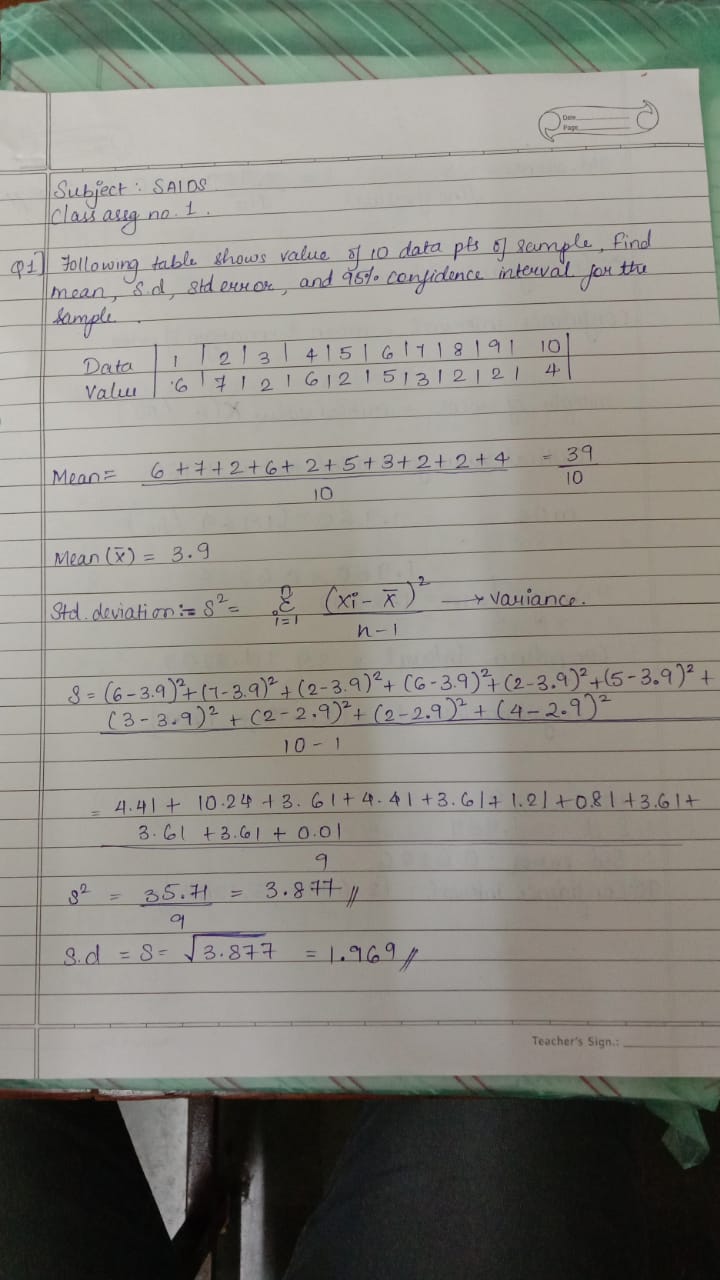 Date
Page
Subject : SAIDS
Class assg no. 1.
Q1] Following table shows value of 10 data pts of sample, Find
mean, s.d, std error, and 95% confidence interval for the
sample.
Data | 1 | 2 | 3 | 4 | 5 | 6 | 7 | 8 | 9 | 10 |
Value | 6 | 7 | 2 | 6 | 2 | 5 | 3 | 2 | 2 | 4 |
Mean = 6 + 7 + 2 + 6 + 2 + 5 + 3 + 2 + 2 + 4 = 39
10 10
Mean (x̄) = 3.9
Std. deviation :- S² = n Σ i=1 (xi - x̄)² → variance.
n-1
S = (6-3.9)² + (7-3.9)² + (2-3.9)² + (6-3.9)² + (2-3.9)² + (5-3.9)² +
(3-3.9)² + (2-2.9)² + (2-2.9)² + (4-2.9)²
10-1
= 4.41 + 10.24 + 3.61 + 4.41 + 3.61 + 1.21 + 0.81 + 3.61 +
3.61 + 3.61 + 0.01
9
S² = 35.71 = 3.877 //
9
S.d = S = √3.877 = 1.969 //
Teacher's Sign.: